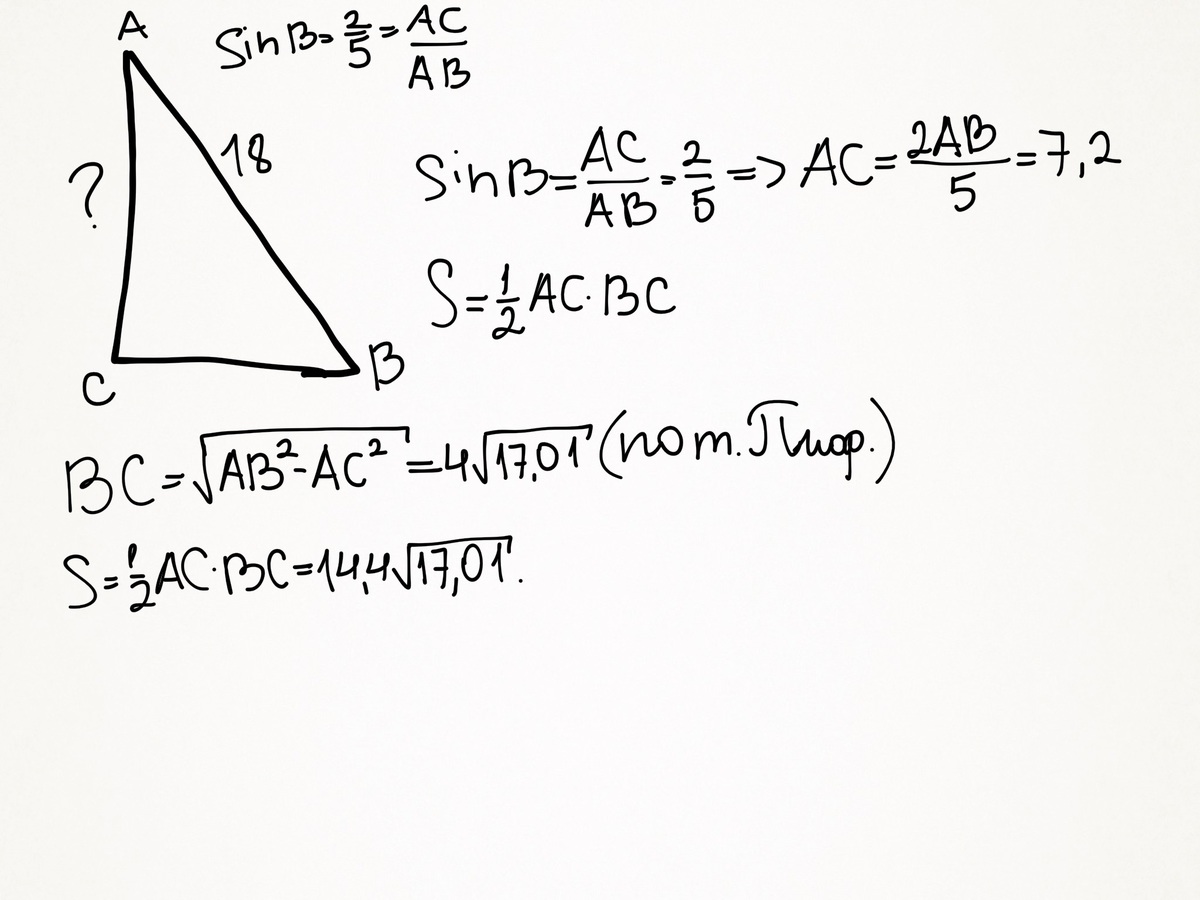 A
Sin B = 2/5 = AC/AB
18
?
Sin B = AC/AB = 2/5 => AC = 2AB/5 = 7,2
S = 1/2 AC · BC
C
B
BC = √(AB² - AC²) = 4√17,01 (по т. Пифор.)
S = 1/2 AC · BC = 14,4√17,01.